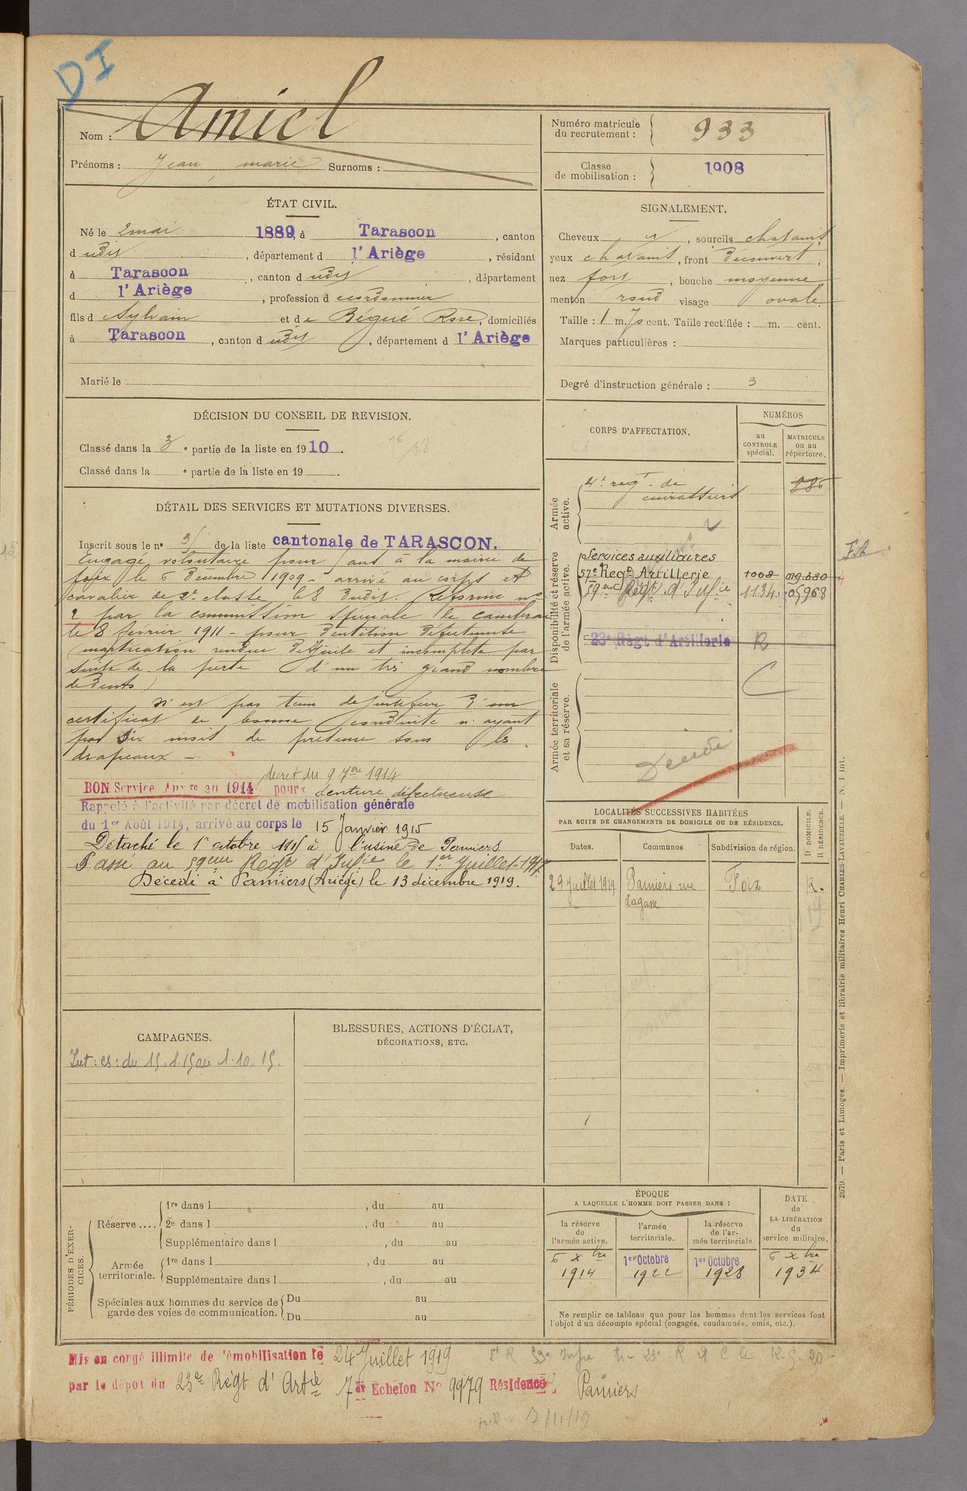 DI
Nom : Amiel
Prénoms : Jean marie Surnoms :
Numéro matricule du recrutement : 933
Classe de mobilisation : 1908
ÉTAT CIVIL.
Né le 2 mai 1889, à Tarascon, canton
dudit, département d l'Ariège, résidant
à Tarascon, canton dudit, département
d l'Ariège, profession de cordonnier
fils d Sylvain et de Bégué Rose, domiciliés
à Tarascon, canton dudit, département d l'Ariège
Marié le
SIGNALEMENT.
Cheveux , sourcils chatains
yeux chatains, front découvert,
nez fort, bouche moyenne
menton rond visage ovale
Taille : 1 m. 70 cent. Taille rectifiée : m. cent.
Marques particulières :
Degré d'instruction générale : 3
DÉCISION DU CONSEIL DE REVISION.
Classé dans la 3e partie de la liste en 1910.
Classé dans la e partie de la liste en 19
DÉTAIL DES SERVICES ET MUTATIONS DIVERSES.
Inscrit sous le n° 31 de la liste cantonale de TARASCON.
Engagé volontaire pour ans à la mairie de
foix le 6 Décembre 1909 - arrivé au corps et
cavalier de 2e classe le 8 dudit. Réformé n°
2 par la commission spéciale de Cambrai
le 3 février 1911 - pour dentition défectueuse
(mastication rendue difficile et incomplète par
suite de la perte d'un très grand nombre
de dents)
N'est pas tenu de justifier d'un
certificat de bonne conduite n'ayant
pas dix mois de présence sous les
drapeaux -
décret du 9 7bre 1914
BON Service Auxre en 1914 pour denture défectueuse
Rappelé à l'activité par décret de mobilisation générale
du 1er Août 1914, arrivé au corps le 15 Janvier 1915
Détaché le 1er octobre 1915 à l'usine de Pamiers
Passé au 59eme Regt d'Infie le 1er Juillet 1917
Décédé à Pamiers (Ariège) le 13 décembre 1919.
CORPS D'AFFECTATION.
NUMÉROS
au CONTROLE spécial.
MATRICULE ou au répertoire.
Armée active.
4e regt de cuirassiers
885
Disponibilité et réserve de l'armée active.
Services auxiliaires
57e Regt Artillerie 1008 019.880
59eme Regt d'Infie 1134 05968
23e Régt d'Artillerie R
Armée territoriale et sa réserve.
Décédé
LOCALITÉS SUCCESSIVES HABITÉES
PAR SUITE DE CHANGEMENTS DE DOMICILE OU DE RÉSIDENCE.
Dates. Communes Subdivision de région. D DOMICILE. R RÉSIDENCE.
29 Juillet 1919 Pamiers rue Lagasse Foix R.
CAMPAGNES.
Int : cs : du 15.1.15 au 1.10.15.
BLESSURES, ACTIONS D'ÉCLAT,
DÉCORATIONS, ETC.
PÉRIODES D'EXERCICES.
Réserve .... 1re dans l , du au
2e dans l , du au
Supplémentaire dans l , du au
Armée territoriale. 1re dans l , du au
Supplémentaire dans l , du au
Spéciales aux hommes du service de garde des voies de communication. Du au
Du au
ÉPOQUE
A LAQUELLE L'HOMME DOIT PASSER DANS :
la réserve de l'armée active.
l'armée territoriale.
la réserve de l'armée territoriale
DATE DE LA LIBÉRATION du service militaire.
6 Xbre 1914
1er Octobre 1922
1er Octobre 1928
6 Xbre 1934
Ne remplir ce tableau que pour les hommes dont les services font
l'objet d'un décompte spécial (engagés, condamnés, omis, etc.).
2679. — Paris et Limoges. — Imprimerie et librairie militaires Henri CHARLES-LAVAUZELLE. — N. 1 int.
Mis en congé illimité de démobilisation le 24 Juillet 1919
par le dépôt du 23e Régt d'Artie 7e Echelon N° 9979 Résidence Pamiers
7/11/19